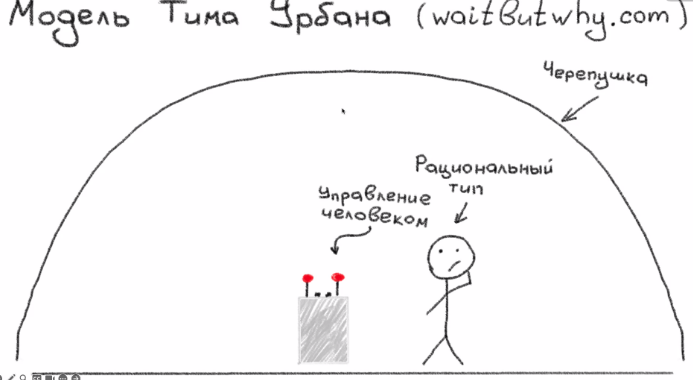 Модель Тима Урбана (waitButwhy.com)
Черепушка
Рациональный
тип
Управление
человеком